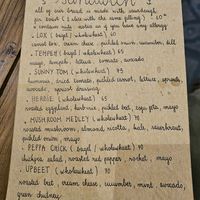 Sandwich's
all of our bread is made with sourdough
for toast (1 slice with the same filling) 50*
* contains nuts, notes us if you have any allergy
• LOX (bagel / wholewheat) 60
carrot lox, cream chese, pickled onion, cucumber, dill
• TEMPEH (bagel / wholewheat) 65
mayo, tempeh, lettuce, tomato, avocado
• SUNNY TOM (wholewheat) 75
hummus, dried tomato, pickled carrot, lettuce, sprouts,
avocado, sprouts, dressing
• HERBIE (wholewheat) 65
roasted eggplant, hummus, pickled beet, mayo
• MUSHROOM MEDLEY (wholewheat) 70
roasted mushroom, almond ricotta, kale, sauerkraut,
pickled onion, mayo
• PEPPA CHICK (bagel / wholewheat) 70
chickpea salad, roasted red pepper, rocket, mayo
• UPBEET (wholewheat) 70
roasted beet, cream cheese, cucumber, mint, avocado,
green chutney